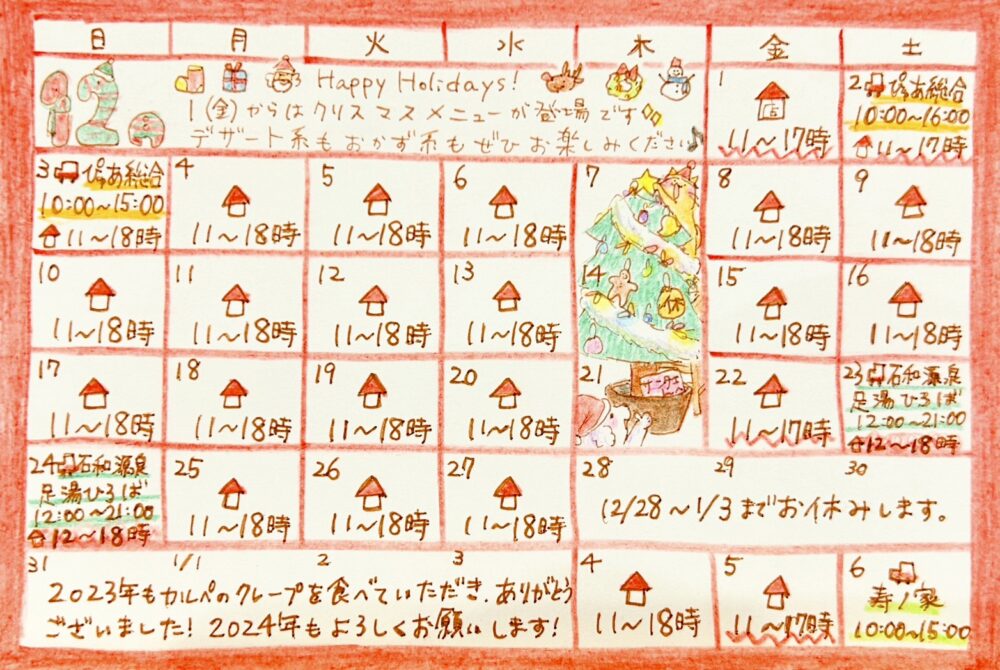 日 月 火 水 木 金 土
12
Happy Holidays!
1(金)からはクリスマスメニューが登場です
デザート系もおかず系もぜひお楽しみください♪
1
店
11〜17時
2 ぴゅあ総合
10:00〜16:00
11〜17時
3 ぴゅあ総合
10:00〜15:00
11〜18時
4
11〜18時
5
11〜18時
6
11〜18時
7
8
11〜18時
9
11〜18時
10
11〜18時
11
11〜18時
12
11〜18時
13
11〜18時
14
休
15
11〜18時
16
11〜18時
17
11〜18時
18
11〜18時
19
11〜18時
20
11〜18時
21
22
11〜17時
23 石和源泉
足湯ひろば
12:00〜21:00
12〜18時
24 石和源泉
足湯ひろば
12:00〜21:00
12〜18時
25
11〜18時
26
11〜18時
27
11〜18時
28 29 30
12/28〜1/3までお休みします。
31 1/1 2 3
2023年もカルペのクレープを食べていただき、ありがとう
ございました！2024年もよろしくお願いします！
4
11〜18時
5
11〜17時
6
寿ノ家
10:00〜15:00